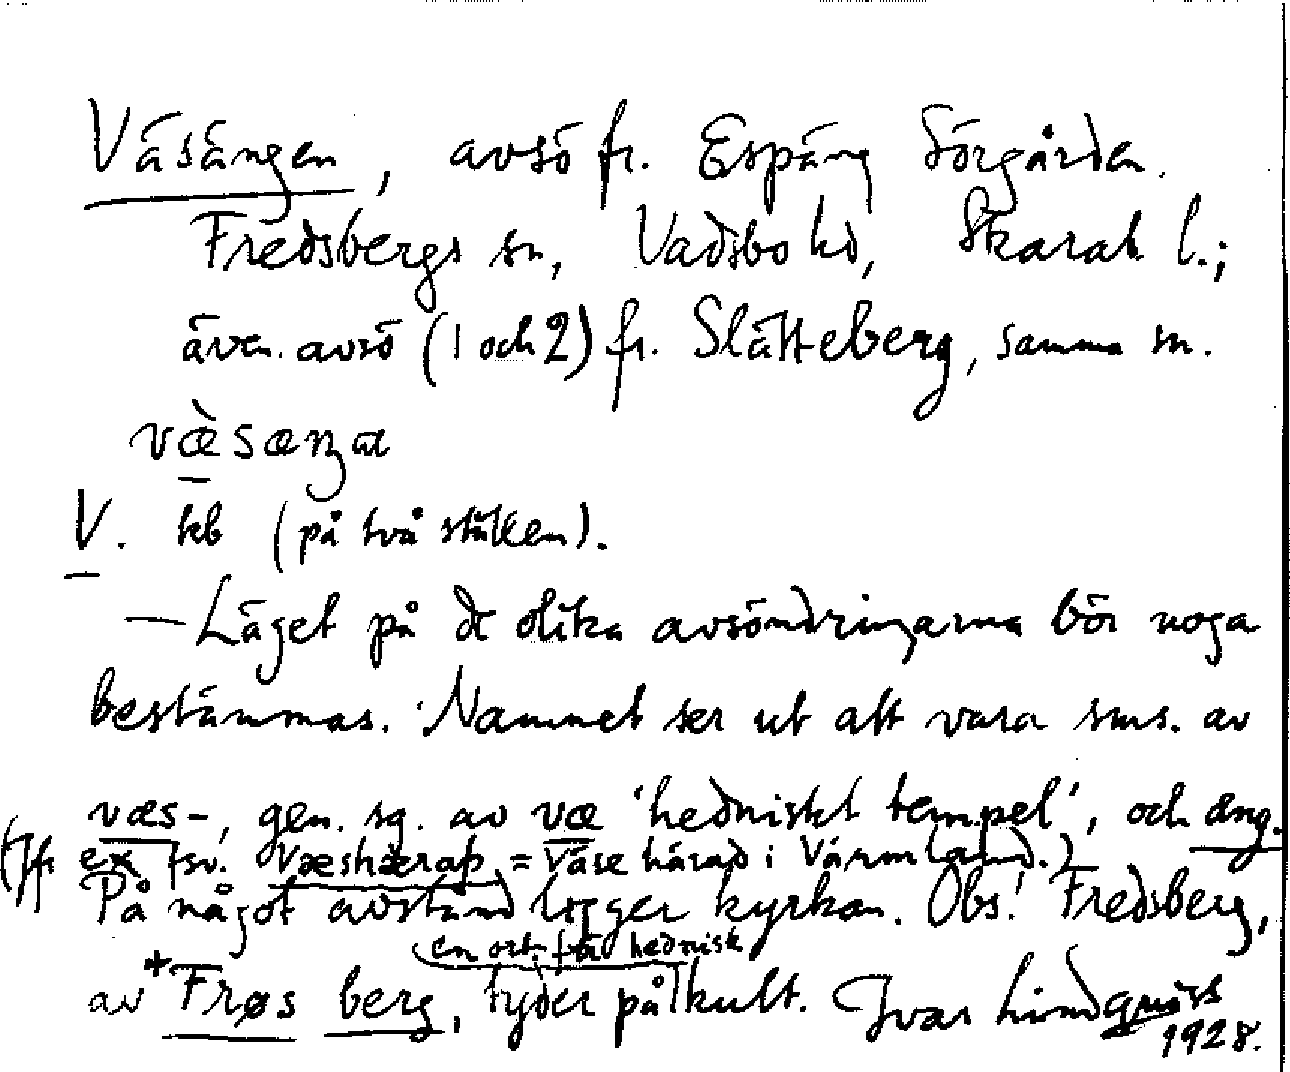 Väsängen, avsö fr. Espäng Sörgården.
Fredsbergs sn, Vadsbo hd, Skarab l.;
även avsö (1 och 2) fr. Slätteberg, samma sn.
væ̀sæŋan
V. kb (på två ställen).
— Läget på de olika avsöndringarna bör noga
bestämmas. Namnet ser ut att vara sms. av
væs-, gen. sg. av væ 'hedniskt tempel', och æng.
(Jfr ex fsv. Væshæraþ = Väse härad i Värmland.)
På något avstånd ligger kyrkan. Obs! Fredsberg,
en ort från hednisk
av *Frøs berg, tyder på kult. Ivar Lindquist
1928.